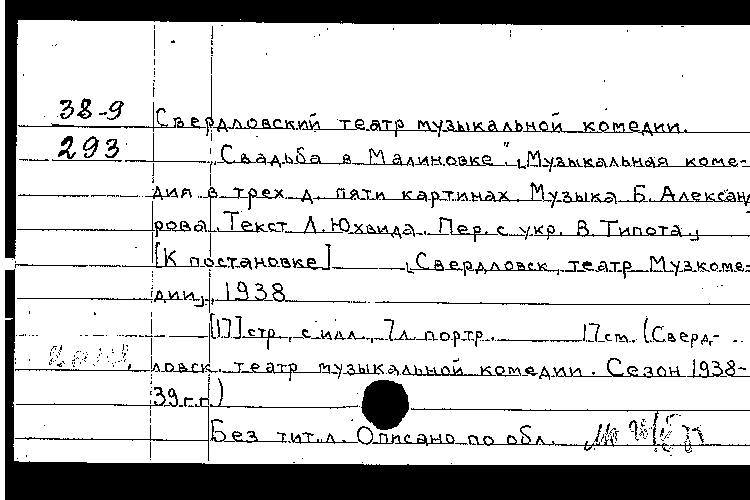 38-9
Свердловский театр музыкальной комедии.
293
„Свадьба в Малиновке". „Музыкальная коме-
дия в трех д. пяти картинах. Музыка Б. Александ
рова. Текст Л. Юхвида. Пер. с укр. В. Типота.„
[К постановке] „Свердловск, театр Музкоме-
дии„, 1938
[17] стр., с илл., 7 л. портр. 17 см. (Сверд-
ловск. театр музыкальной комедии. Сезон 1938-
39 г.г.)
Без тит. л. Описано по обл.